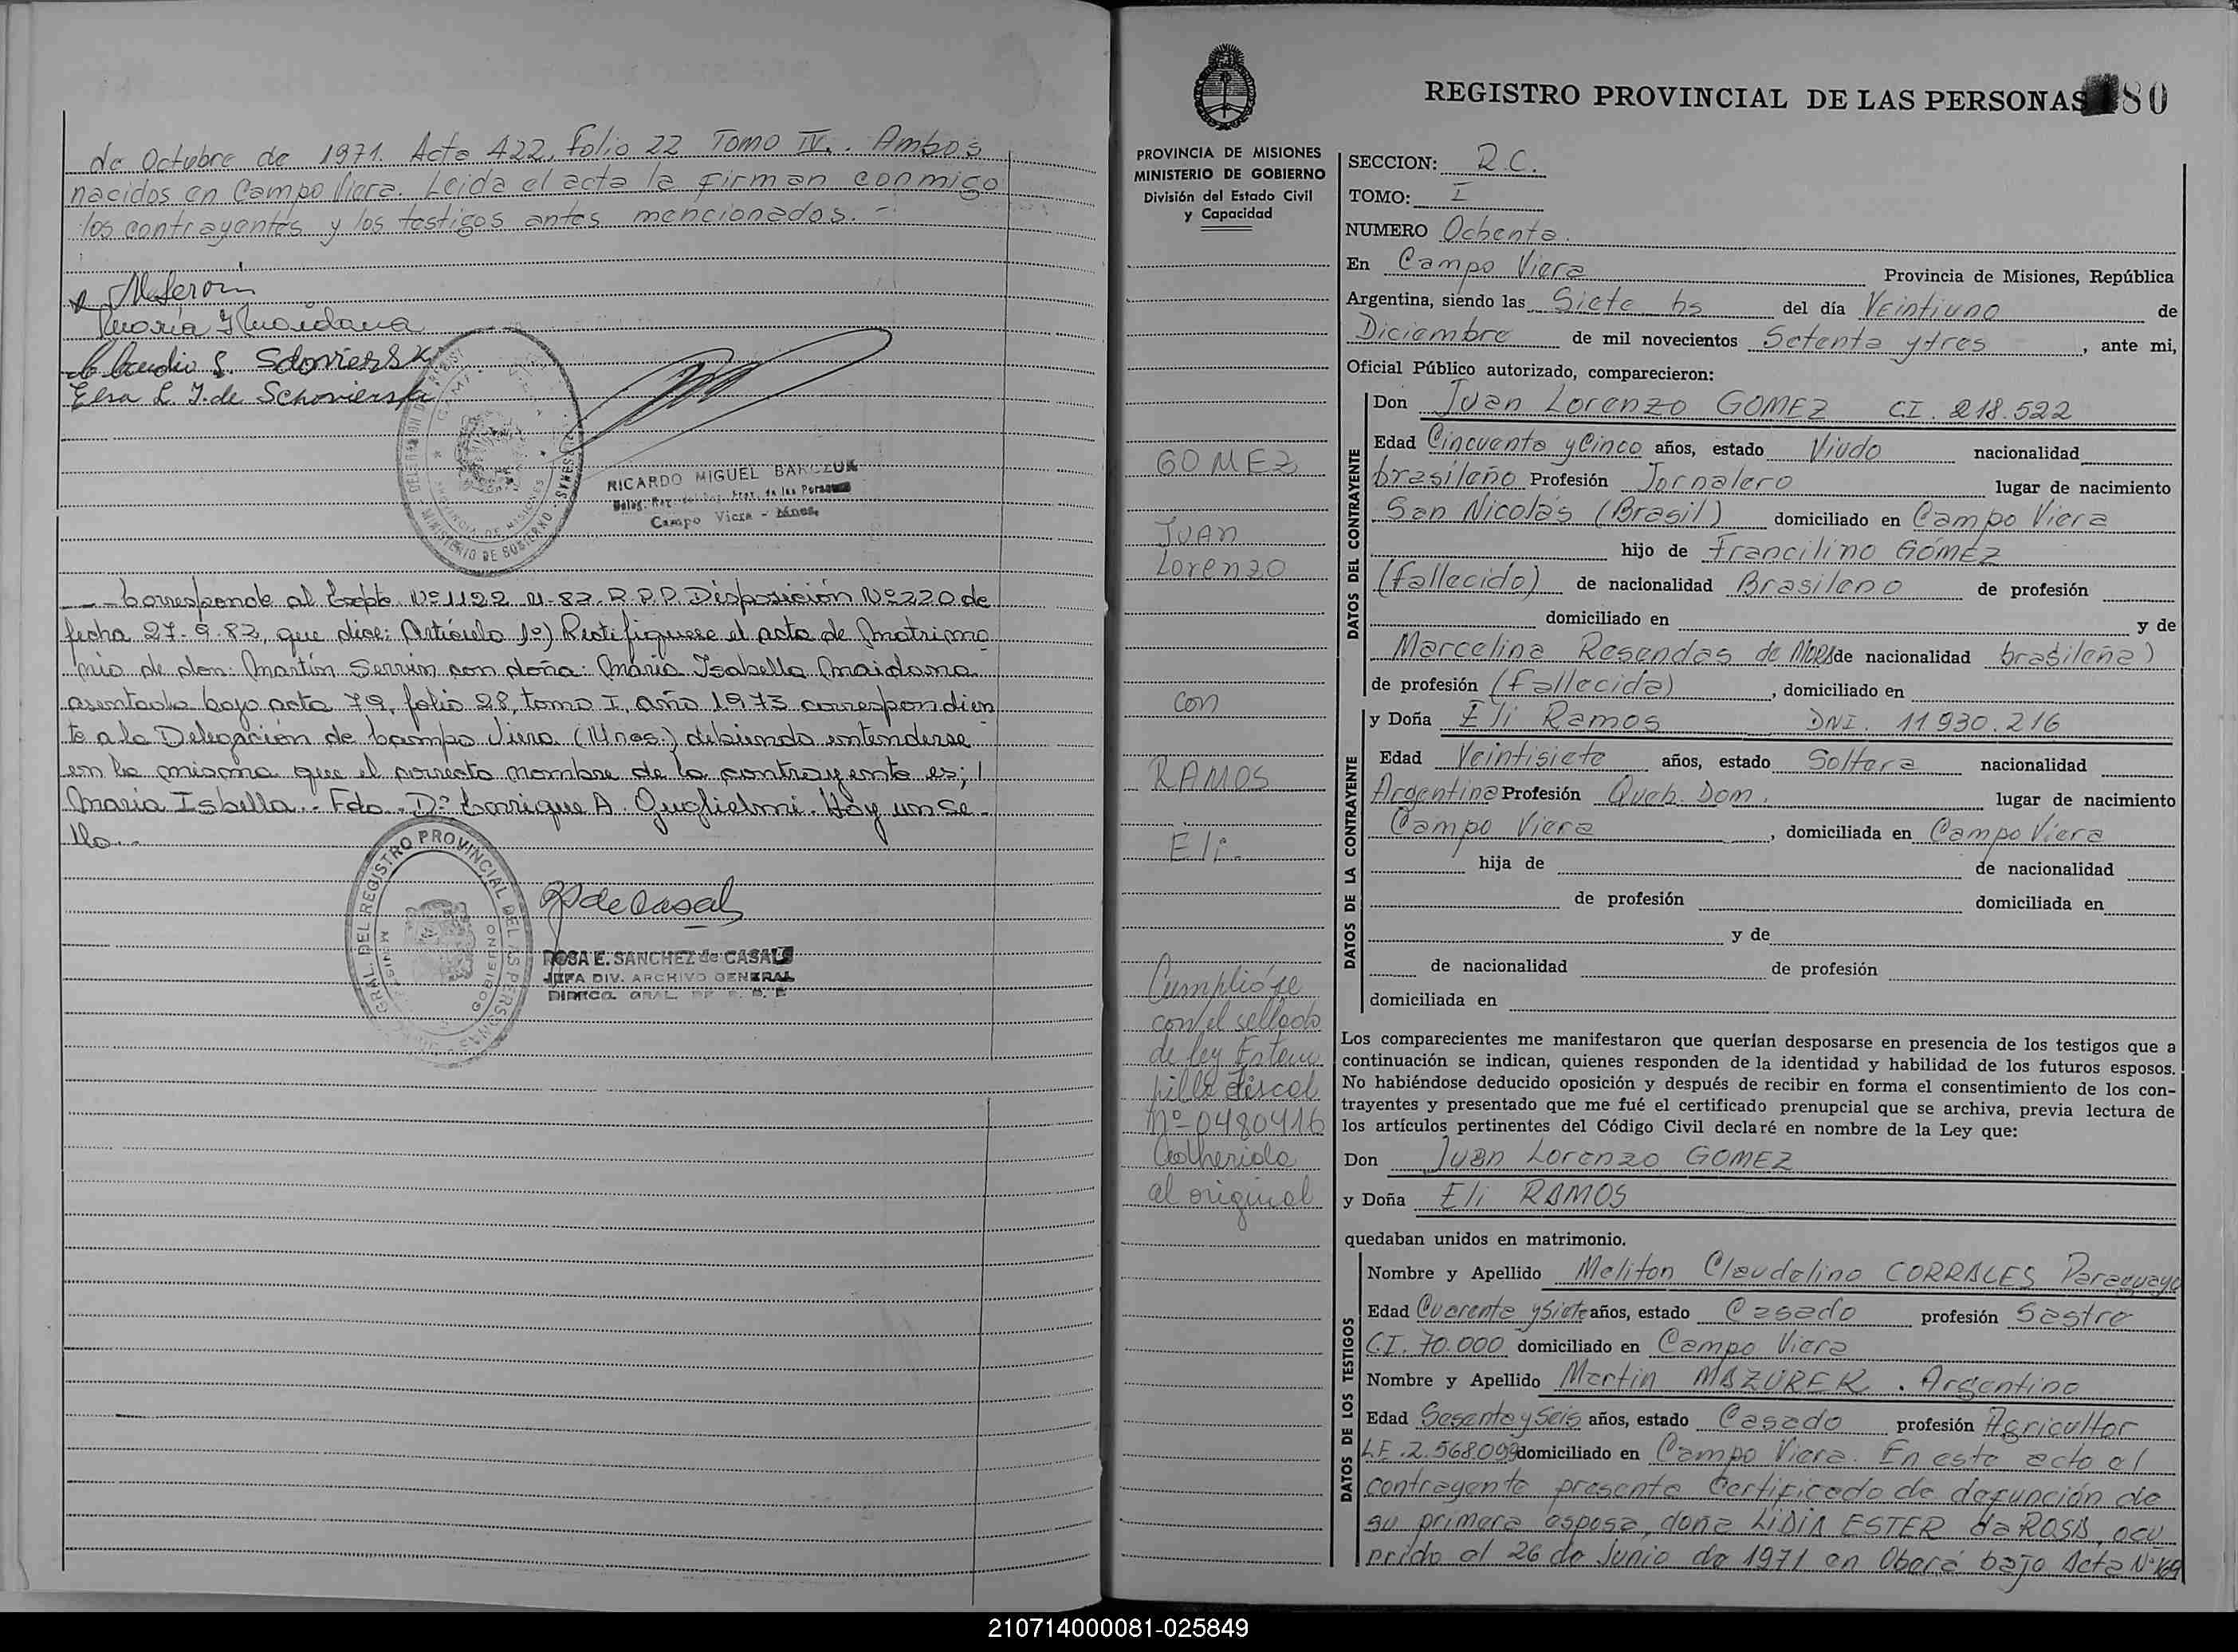 de Octubre de 1971. Acta 422, Folio 22 Tomo IV.. Ambos
nacidos en Campo Viera. Leida el acta la firman conmigo
los contrayentes y los testigos antes mencionados. -
Elsa L. J. de Schovierski
RICARDO MIGUEL BARCZUK
Campo Viera - Mnes.
MINISTERIO DE GOBIERNO
--- Corresponde al Expte Nº 1122 M-82. R.P.P. Disposición Nº 220 de
fecha 27-9-82, que dice: Artículo 1º) Rectifiquese el acta de Matrimo
nio de don: Martín Servin con doña: María Isabella Maidana
asentada bajo acta 79, folio 28, tomo I, año 1973 correspondien
te a la Delegación de Campo Viera (Mnes.) debiendo entenderse
en la misma que el correcto nombre de la contrayente es;
María Isbella.- Fdo. Dº Enrique A. Guglielmi. Hay un se-
llo.-
GRAL. DEL REGISTRO PROVINCIAL DE LAS PERSONAS
ROSA E. SANCHEZ de CASALS
JEFA DIV. ARCHIVO GENERAL
DIRECC. GRAL.
REGISTRO PROVINCIAL DE LAS PERSONAS 80
PROVINCIA DE MISIONES
MINISTERIO DE GOBIERNO
División del Estado Civil
y Capacidad
GOMEZ
JUAN
Lorenzo
con
RAMOS
Eli.
Cumplióse
con el sellado
de ley Estam
pilla fiscal
Nº 0480416
adherida
al original
SECCION: R.C.
TOMO: I
NUMERO Ochenta.
En Campo Viera Provincia de Misiones, República
Argentina, siendo las Siete hs del día Veintiuno de
Diciembre de mil novecientos Setenta y tres, ante mi,
Oficial Público autorizado, comparecieron:
DATOS DEL CONTRAYENTE
Don Juan Lorenzo GOMEZ C.I. 218.522
Edad Cincuenta y Cinco años, estado Viudo nacionalidad
brasileño Profesión Jornalero lugar de nacimiento
San Nicolás (Brasil) domiciliado en Campo Viera
hijo de Francilino GÓMEZ
(fallecido) de nacionalidad Brasileno de profesión
domiciliado en y de
Marcelina Resendas de MORA de nacionalidad brasileña)
de profesión (fallecida), domiciliado en
DATOS DE LA CONTRAYENTE
y Doña Eli Ramos DNI. 11.930.216
Edad Veintisiete años, estado Soltera nacionalidad
Argentina Profesión Queh. Dom. lugar de nacimiento
Campo Viera, domiciliada en Campo Viera
hija de de nacionalidad
de profesión domiciliada en
y de
de nacionalidad de profesión
domiciliada en
Los comparecientes me manifestaron que querían desposarse en presencia de los testigos que a
continuación se indican, quienes responden de la identidad y habilidad de los futuros esposos.
No habiéndose deducido oposición y después de recibir en forma el consentimiento de los con-
trayentes y presentado que me fué el certificado prenupcial que se archiva, previa lectura de
los artículos pertinentes del Código Civil declaré en nombre de la Ley que:
Don Juan Lorenzo GOMEZ
y Doña Eli RAMOS
quedaban unidos en matrimonio.
DATOS DE LOS TESTIGOS
Nombre y Apellido Meliton Claudelino CORRALES Paraguayo
Edad Cuarenta y Siete años, estado Casado profesión Sastre
C.I. 70.000 domiciliado en Campo Viera
Nombre y Apellido Martin MAZURER. Argentino
Edad Sesenta y Seis años, estado Casado profesión Agricultor
L.E. 2.568.099 domiciliado en Campo Viera. En este acto el
contrayente presenta Certificado de defunción de
su primera esposa, doña LIDIA ESTER da ROSA, ocu
rrido el 26 de Junio de 1971 en Oberá bajo Acta Nº 169
210714000081-025849